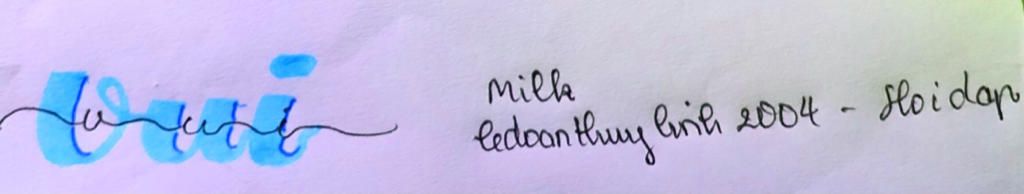 vui
Milk
ledoanthuylinh 2004 - Hoidap